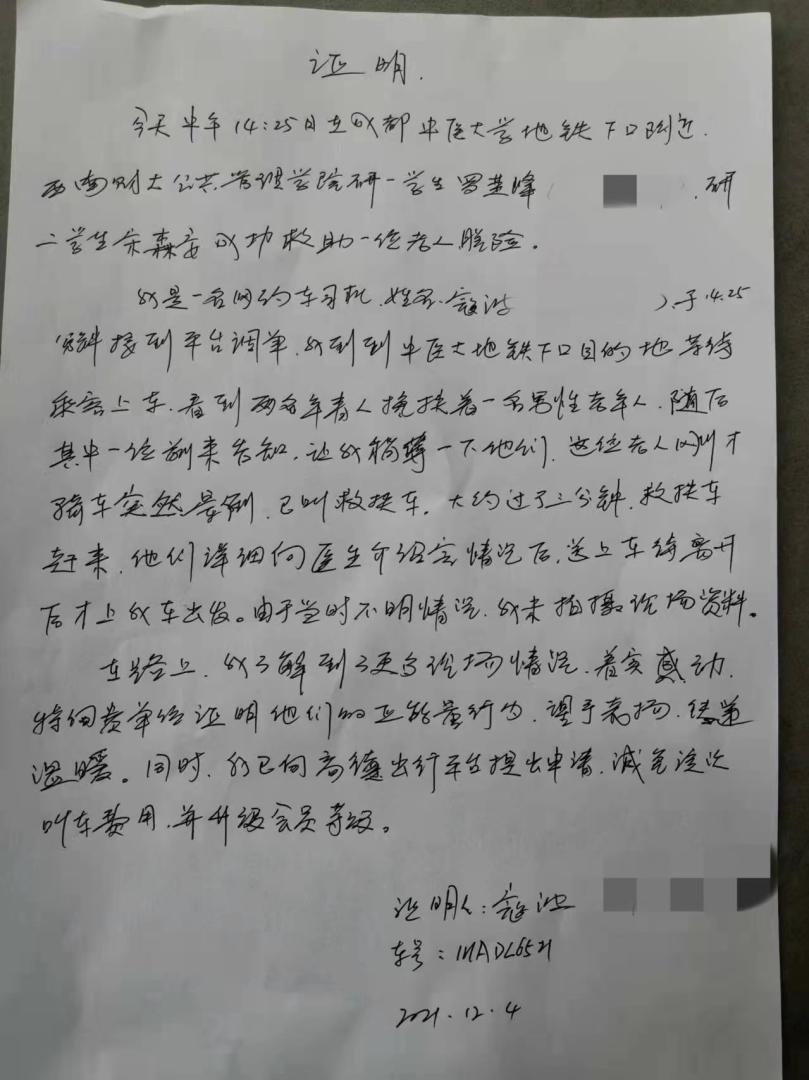 证明.
今天中午14:25日在成都中医大学地铁下口附近.
西南财大公共管理学院研一学生罗楚峰( ).研
二学生余森安成功救助一位老人脱险。
我是一名网约车司机.姓名:寇波 ).于14.25
接到平台调单.我到到中医大地铁下口目的地等待
乘客上车.看到两名年青人搀扶着一名男性老年人.随后
其中一位前来告知.让我稍等一下他们.这位老人刚才
骑车突然晕倒.已叫救护车.大约过了三分钟.救护车
赶来.他们详细向医生介绍完情况后.送上车待离开
后才上我车出发。由于当时不明情况.我未拍摄现场资料。
在路上.我了解到了更多现场情况.着实感动.
特向贵单位证明他们的正能量行为.望予表扬.传递
温暖。同时.我已向高德出行平台提出申请.减免该次
叫车费用.并升级会员等级。
证明人:寇波
车号:
2021.12.4